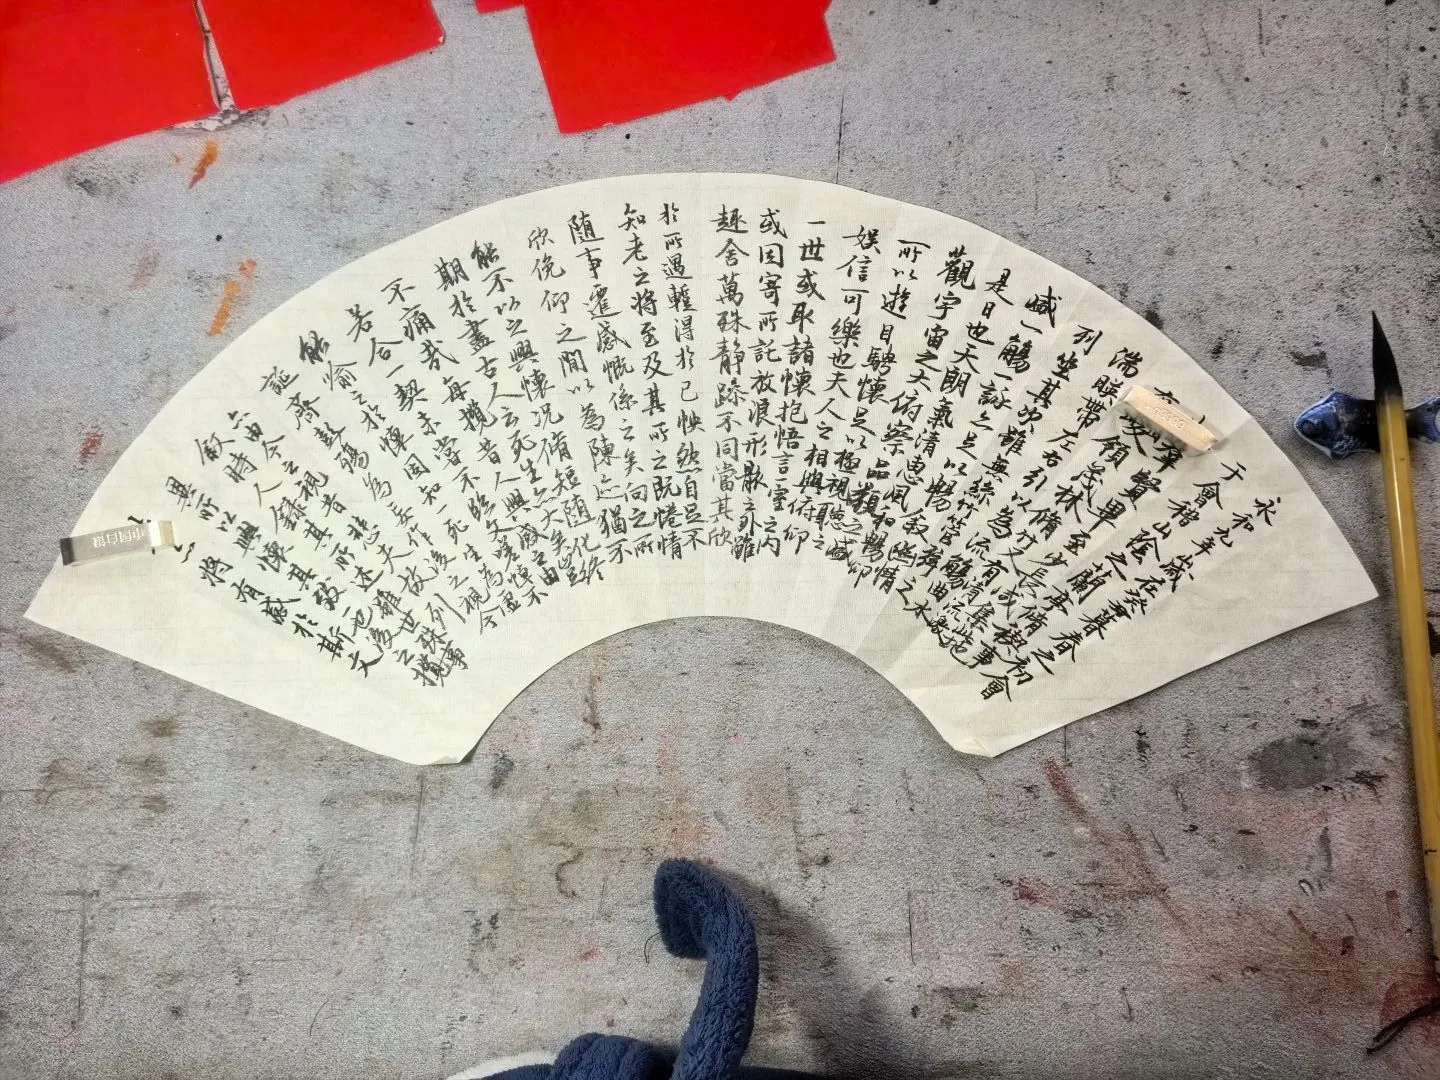 永和九年歲在癸丑暮春之初會
于會稽山陰之蘭亭脩禊事
羣賢畢至少長咸集此地
有峻領茂林脩竹又有清流激
湍暎帶左右引以為流觴曲水
列坐其次雖無絲竹管弦之
盛一觴一詠亦足以暢叙幽情
是日也天朗氣清惠風和暢仰
觀宇宙之大俯察品類之盛
所以遊目騁懷足以極視聽之
娛信可樂也夫人之相與俯仰
一世或取諸懷抱悟言一室之內
或因寄所託放浪形骸之外雖
趣舍萬殊靜躁不同當其欣
於所遇蹔得於己怏然自足不
知老之將至及其所之既惓情
隨事遷感慨係之矣向之所
欣俛仰之間以為陳迹猶不
能不以之興懷況脩短隨化終
期於盡古人云死生亦大矣豈
不痛哉每攬昔人興感之由
若合一契未嘗不臨文嗟悼不
能喻之於懷固知一死生為虛
誕齊彭殤為妄作後之視今
亦由今之視昔悲夫故列
敘時人錄其所述雖世殊事
異所以興懷其致一也後之攬
將有感於斯文
中国白银